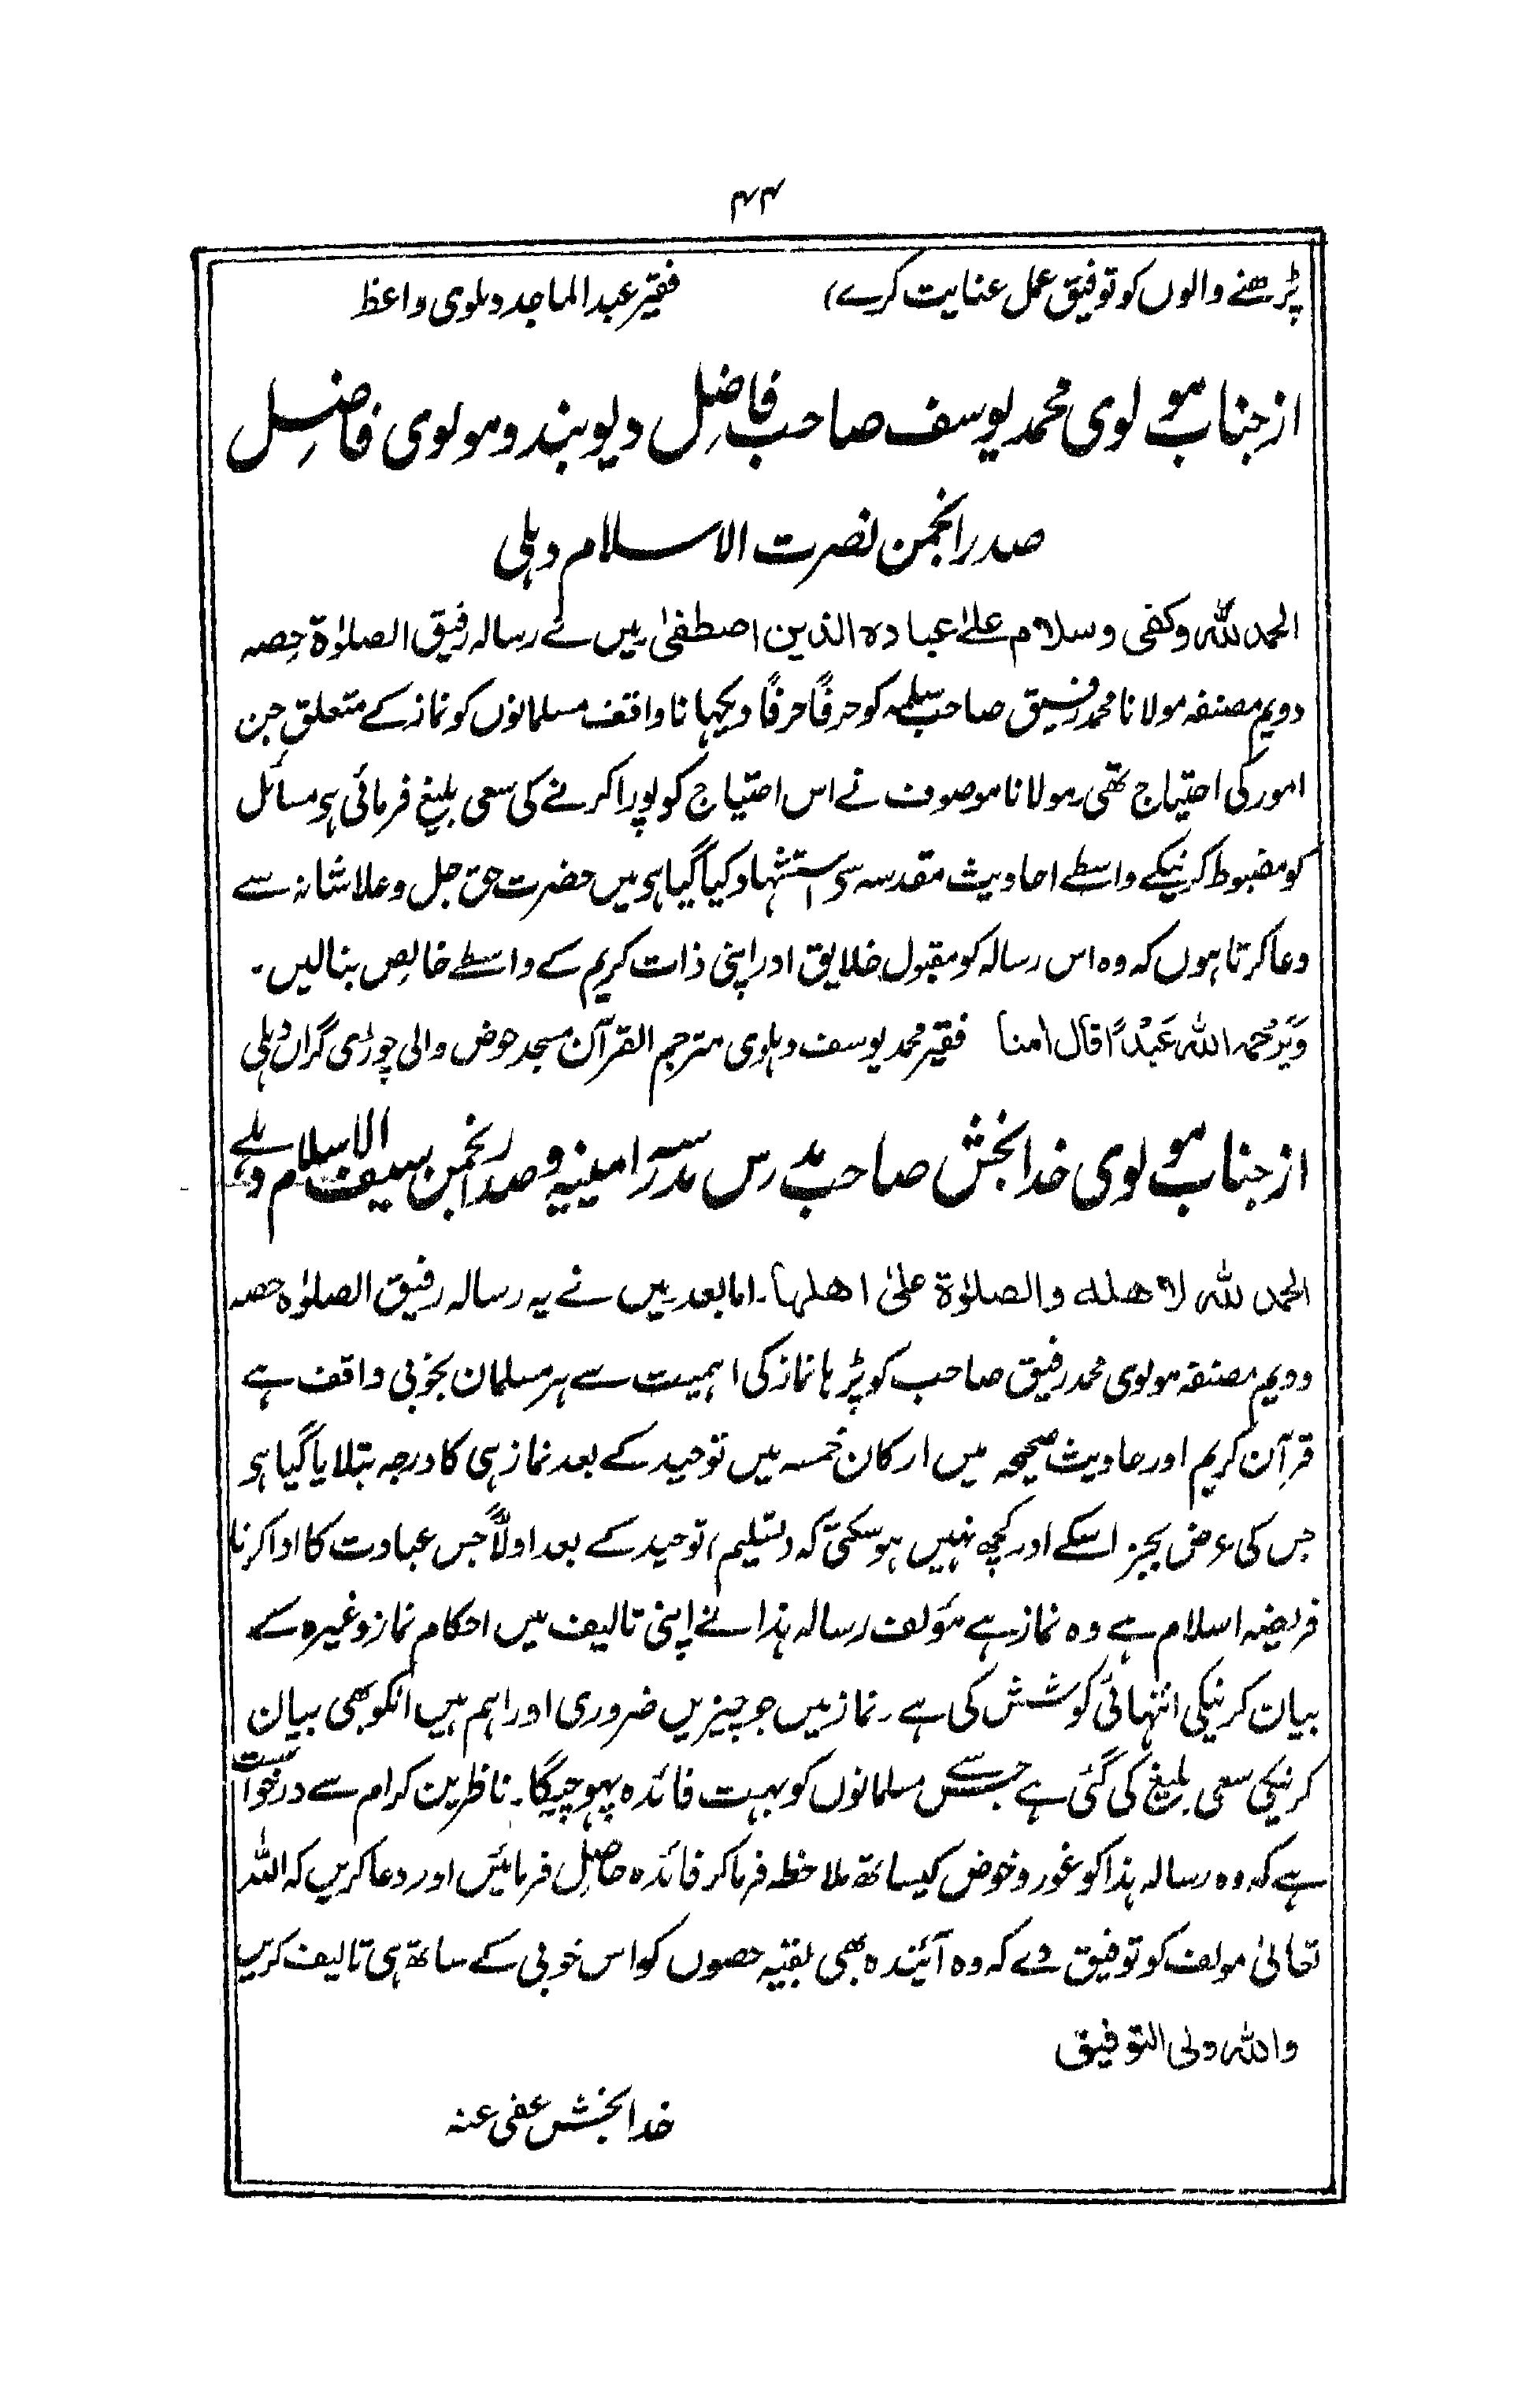 ۴۴
پڑھنے والوں کو توفیق عمل عنایت کرے) فقیر عبدالماجد دہلوی واعظ
از جناب مولوی محمد یوسف صاحب فاضل دیوبند و مولوی فاضل
صدر انجمن نصرت الاسلام دہلی
الحمد للہ وکفی وسلام علیٰ عبادہ الذین اصطفیٰ میں نے رسالہ رفیق الصلوٰۃ حصہ
دویم مصنفہ مولانا محمد رفیق صاحب سلمہ کو حرفاً حرفاً دیکھا ناواقف مسلمانوں کو نماز کے متعلق جن
امور کی احتیاج تھی مولانا موصوف نے اس احتیاج کو پورا کرنے کی سعی بلیغ فرمائی ہی مسائل
کو مضبوط کرنیکے واسطے احادیث مقدسہ سی استشہاد کیا گیا ہی میں حضرت حق جل وعلا شانہ سے
دعا کرتا ہوں کہ وہ اس رسالہ کو مقبول خلایق اور اپنی ذات کریم کے واسطے خالص بنالیں۔
وَیَرْحَمُ اللہ عَبْدًا قال اٰمنا فقیر محمد یوسف دہلوی مترجم القرآن مسجد حوض والی چوڑی گراں دہلی
از جناب مولوی خدا بخش صاحب مدرس مدرسہ امینیہ و صدر انجمن سیف الاسلام دہلے
الحمد للہ لاھلہ والصلوٰۃ علیٰ اھلہا۔ اما بعد میں نے یہ رسالہ رفیق الصلوٰہ حصہ
دویم مصنفہ مولوی محمد رفیق صاحب کو پڑہا نماز کی اہمیت سے ہر مسلمان بخوبی واقف ہے
قرآن کریم اور حادیث صحیحہ میں ارکان خمسہ میں توحید کے بعد نماز ہی کا درجہ بتلایا گیا ہو
جس کی غرض بجز اسکے اور کچھ نہیں ہو سکتی کہ (تسلیم) توحید کے بعد اولاً جس عبادت کا ادا کرنا
فریضہ اسلام ہے وہ نماز ہے مؤلف رسالہ ہذا نے اپنی تالیف میں احکام نماز وغیرہ کے
بیان کرنیکی انتہائی کوشش کی ہے۔ نماز میں جو چیزیں ضروری اور اہم ہیں انکو بھی بیان
کرنیکی سعی بلیغ کی گئی ہے جس سے مسلمانوں کو بہت فائدہ پہونچیگا۔ ناظرین کرام سے درخواست
ہے کہ وہ رسالہ ہذا کو غور و خوض کیساتھ ملاحظہ فرما کر فائدہ حاصل فرمائیں اور دعا کریں کہ اللہ
تعالیٰ مولف کو توفیق دے کہ وہ آئیندہ بھی بقیہ حصوں کو اس خوبی کے ساتھ ہی تالیف کریں
واللہ ولی التوفیق
خدا بخش عفی عنہ